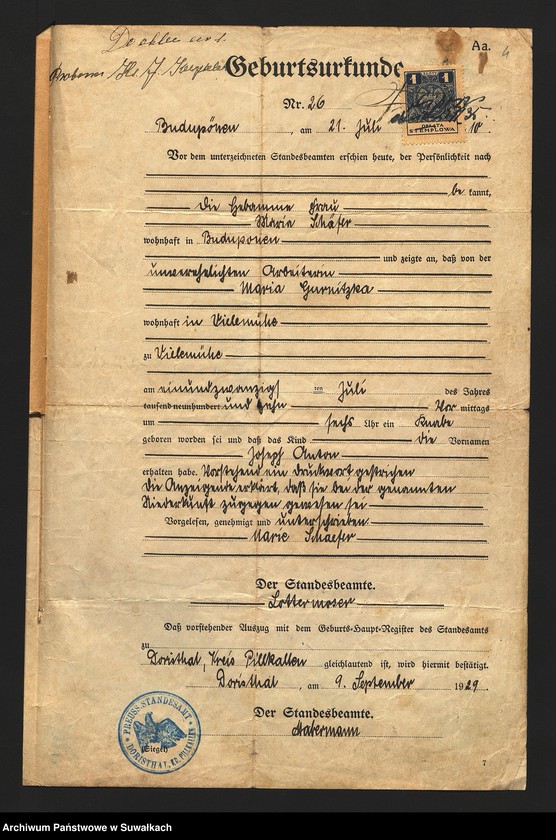 Aa.
4
Geburtsurkunde
Nr. 26
1 1
OPŁATA
STEMPLOWA
Budupönen, am 21. Juli 1910.
Vor dem unterzeichneten Standesbeamten erschien heute, der Persönlichkeit nach
be kannt,
die Hebamme Frau
Marie Schäfer
wohnhaft in Buduponen
und zeigte an, daß von der
unverehelichten Arbeiterin
Maria Gurnitzka
wohnhaft in Vielemühe
zu Vielemühe
am einundzwanzigst von Juli des Jahres
tausend neunhundert und zehn Vor mittags
um sechs Uhr ein Knabe
geboren worden sei und daß das Kind die Vornamen
Joseph Anton
erhalten habe. Vorstehend ein Druckwort gestrichen
Die Anzeigende erklärt, daß sie bei der genannten
Niederkunft zugegen gewesen sei
Vorgelesen, genehmigt und unterschrieben
Marie Schaefer
Der Standesbeamte.
Lottermoser
Daß vorstehender Auszug mit dem Geburts-Haupt-Register des Standesamts
zu
Doristhal, Kreis Pillkallen gleichlautend ist, wird hiermit bestätigt.
Doristhal, am 9. September 1929.
Der Standesbeamte.
Ackermann
PREUSS. STANDESAMT
DORISTHAL, KR. PILLKALLEN
(Siegel)
7
Archiwum Państwowe w Suwałkach